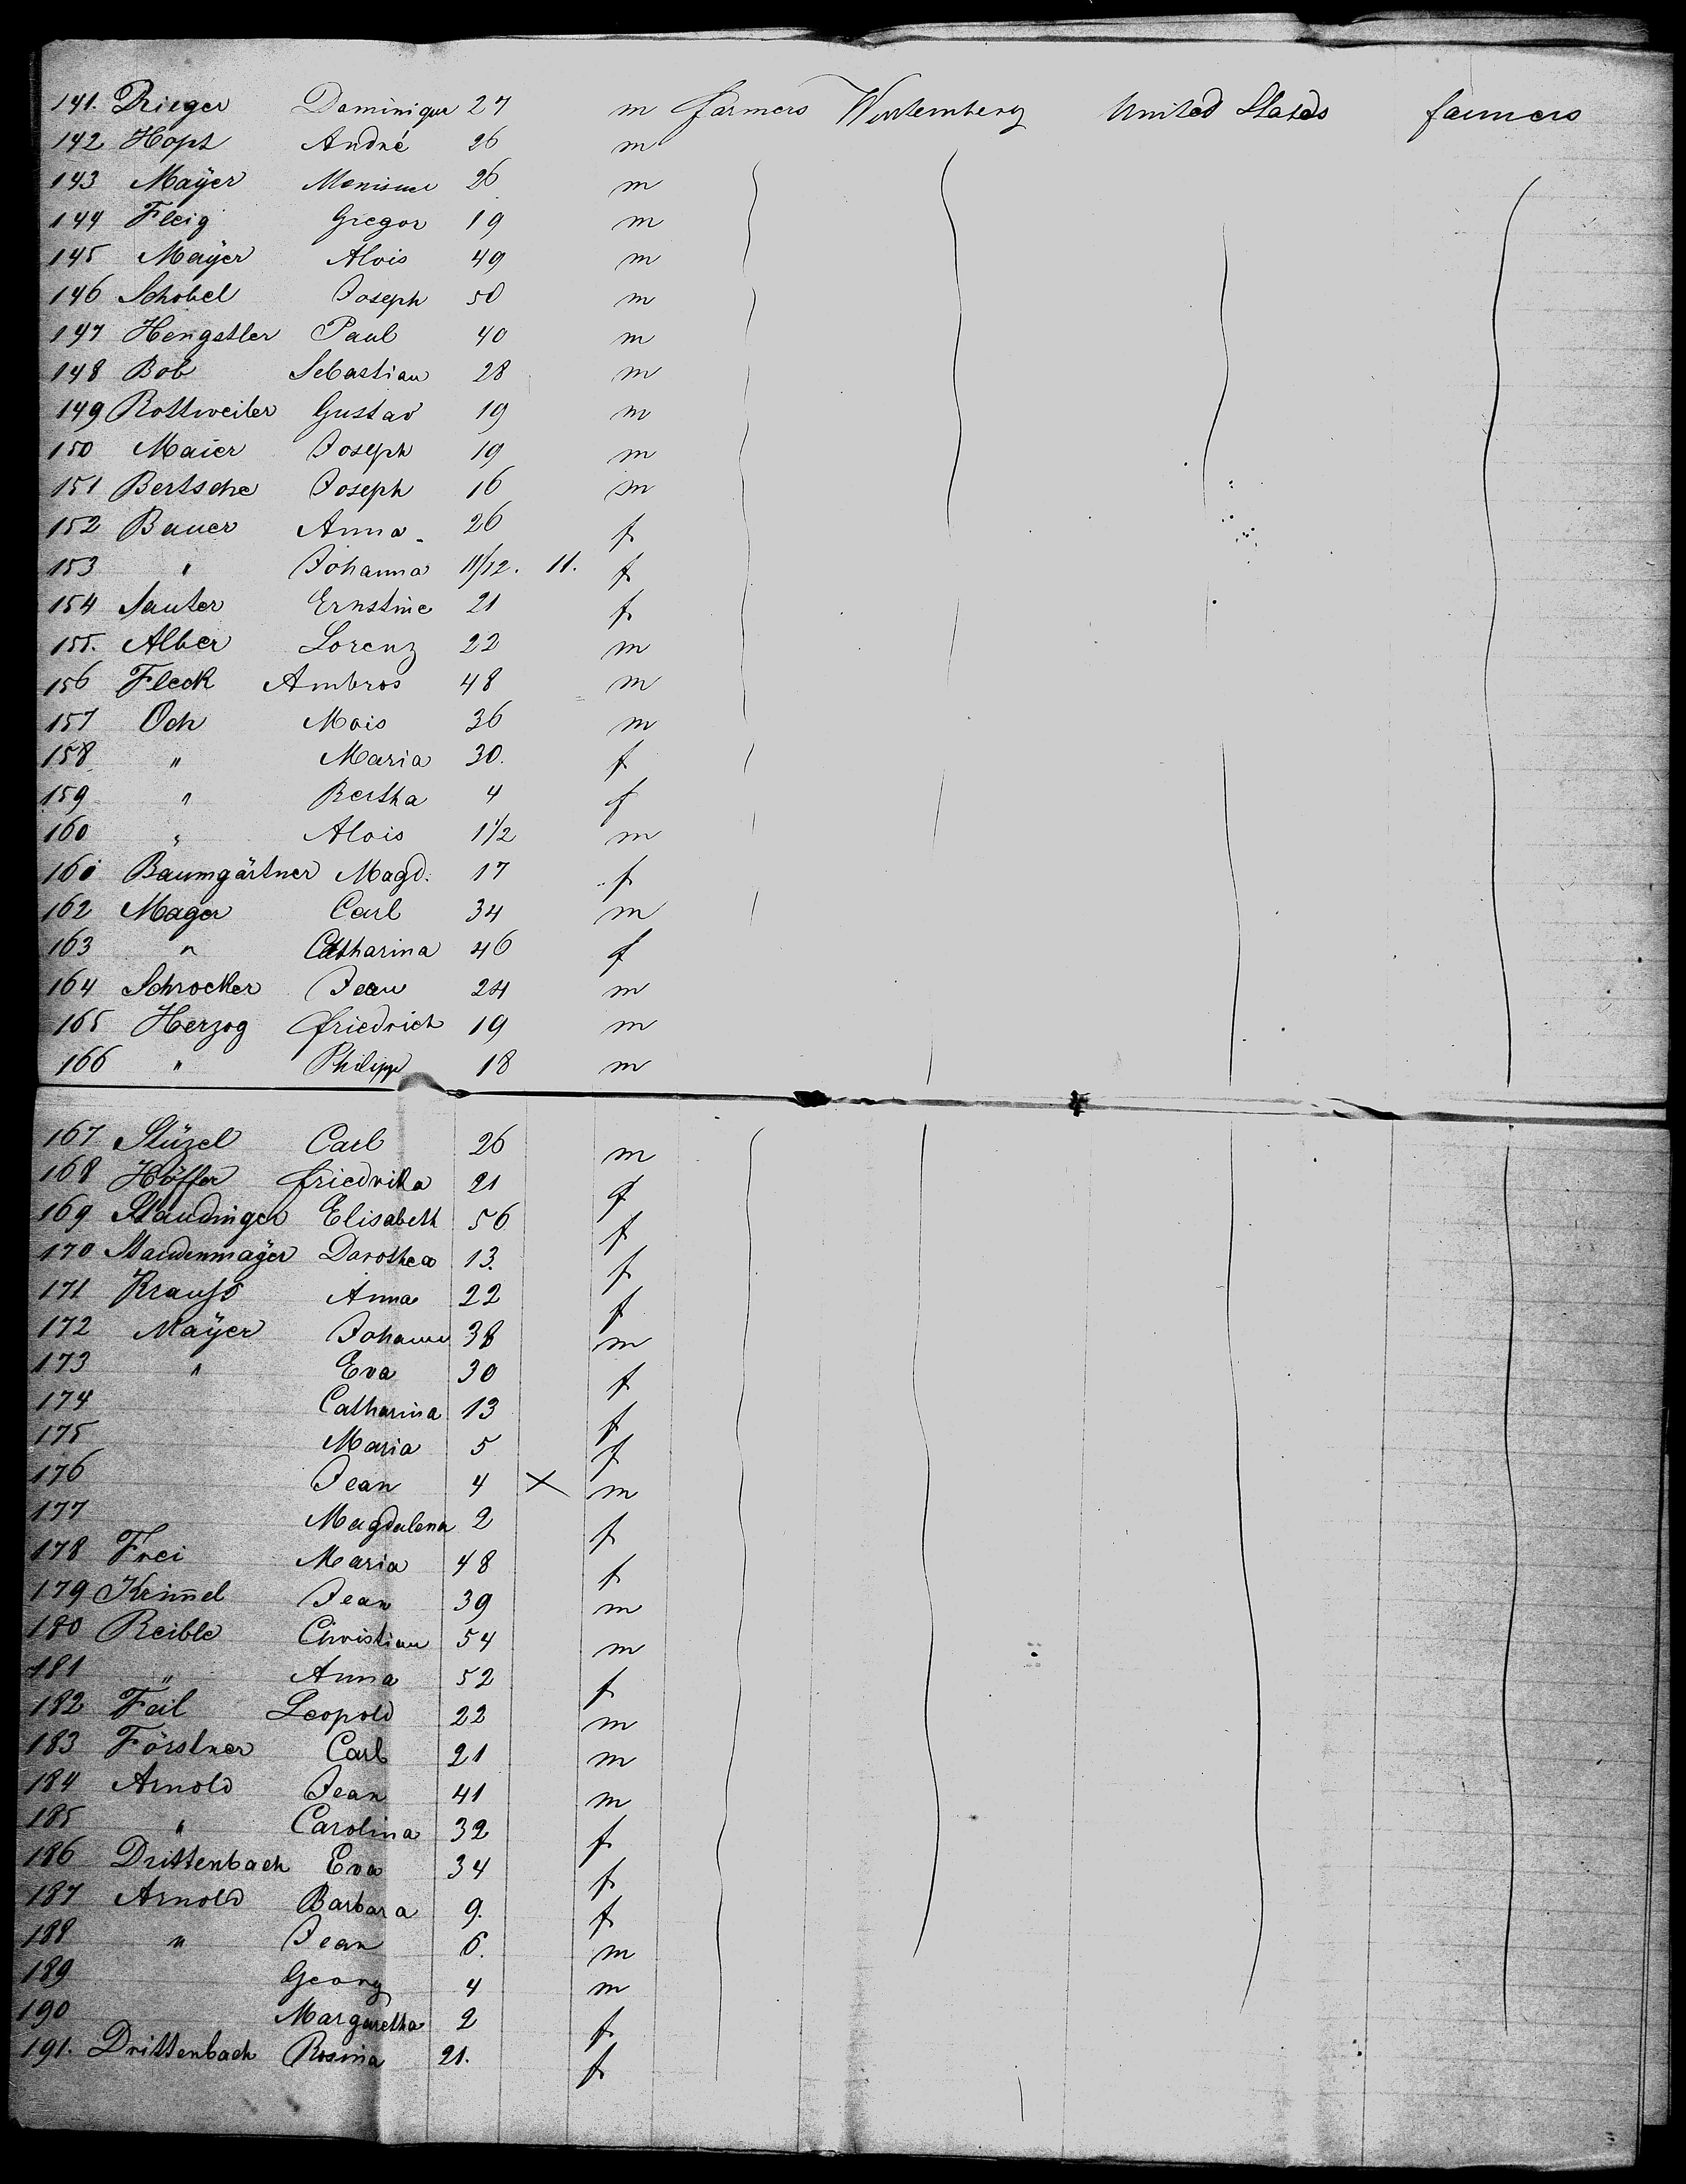 141. Rieger Dominique 27 m farmers Wurtemberg United States farmers
142 Hopt André 26 m
143 Mayer 26 m
144 Fleig Gregor 19 m
145 Mayer Alois 49 m
146 Schobel Joseph 50 m
147 Hengstler Paul 40 m
148 Bob Sebastian 28 m
149 Rottweiler Gustav 19 m
150 Maier Joseph 19 m
151 Bertsche Joseph 16 m
152 Bauer Anna 26 f
153 " Johanna 11/12. 11. f
154 Sauter Ernstine 21 f
155. Alber Lorenz 22 m
156 Fleck Ambros 48 m
157 Och Alois 36 m
158 " Maria 30. f
159 " Bertha 4 f
160 " Alois 1 1/2 m
161 Baumgärtner Magd. 17 f
162 Mager Carl 34 m
163 " Catharina 46 f
164 Schrocker Jean 24 m
165 Herzog Friedrich 19 m
166 " Philipp 18 m
167 Stüzel Carl 26 m
168 Höffer Friedrika 21 f
169 Staudinger Elisabeth 56 f
170 Staudenmayer Dorothea 13. f
171 Krauss Anna 22 f
172 Mayer Johann 38 m
173 " Eva 30 f
174 Catharina 13 f
175 Maria 5 f
176 Jean 4 X m
177 Magdalena 2 f
178 Frei Maria 48 f
179 Krim̄el Jean 39 m
180 Reible Christian 54 m
181 " Anna 52 f
182 Feil Leopold 22 m
183 Förstner Carl 21 m
184 Arnold Jean 41 m
185 " Carolina 32 f
186 Drittenbach Eva 34 f
187 Arnold Barbara 9. f
188 " Jean 6. m
189 Georg 4 m
190 Margaretha 2 f
191. Drittenbach Rosina 21. f